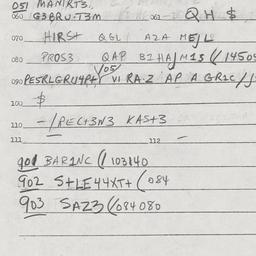 051 MANIRT3.
060 G3BRU-T3M 061 QH $
070 HIRS+ QGL A2A MEJL
080 PROS3 QAP B2HAJM13 (/ 14504
/05/
090 PE5RLGRU4P+ VI RA.2 AP A GR1C /J
100 $
110 -/PEC+3N3 KAS+3
111 112 -
901 BAR1NC (/ 103140
902 S+LE44XT+ (084
903 SAZ3 (/084080